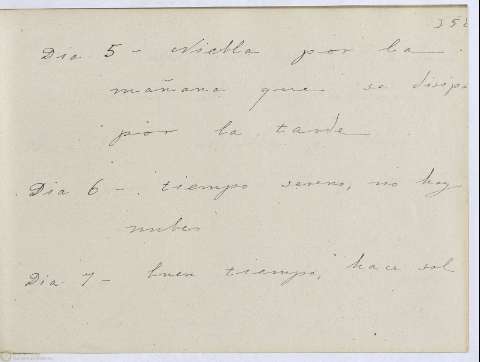 Dia 5 - Niebla por la
mañana que se disipa
por la tarde
Dia 6 - tiempo sereno, no hay
nubes
Dia 7 - buen tiempo, hace sol